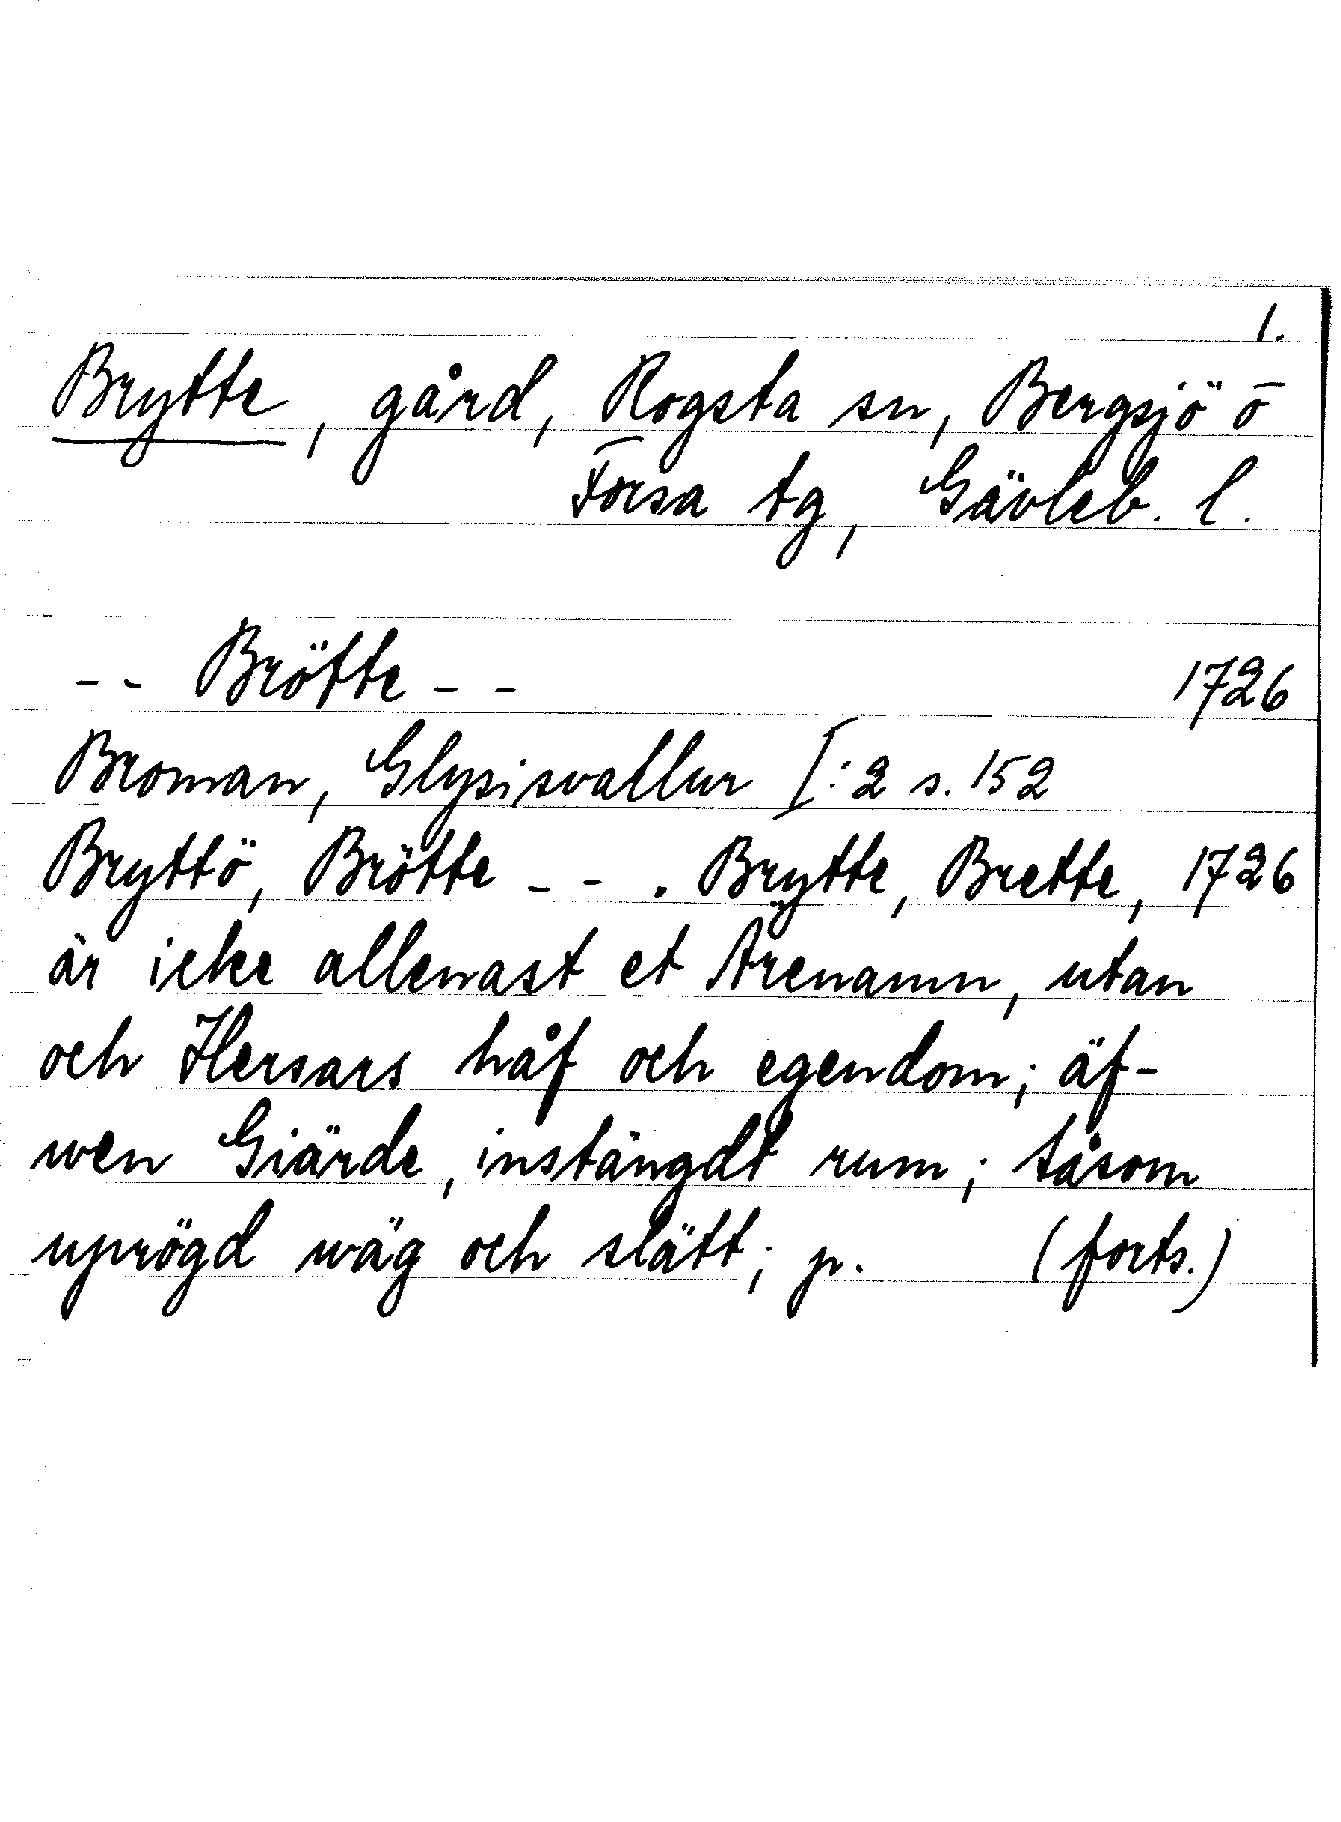 1.
Brytte, gård, Rogsta sn, Bergsjö o
Forsa tg, Gävleb. l.
-- Brötte -- 1726
Broman, Glysisvallur I:2 s. 152
Bryttö, Brötte --. Brytte, Brette, 1726
är icke allenast et Ärenamn, utan
och Hersars håf och egendom; äf-
wen Giärde, instängdt rum; såsom
uprögd wäg och slätt; p. (forts.)